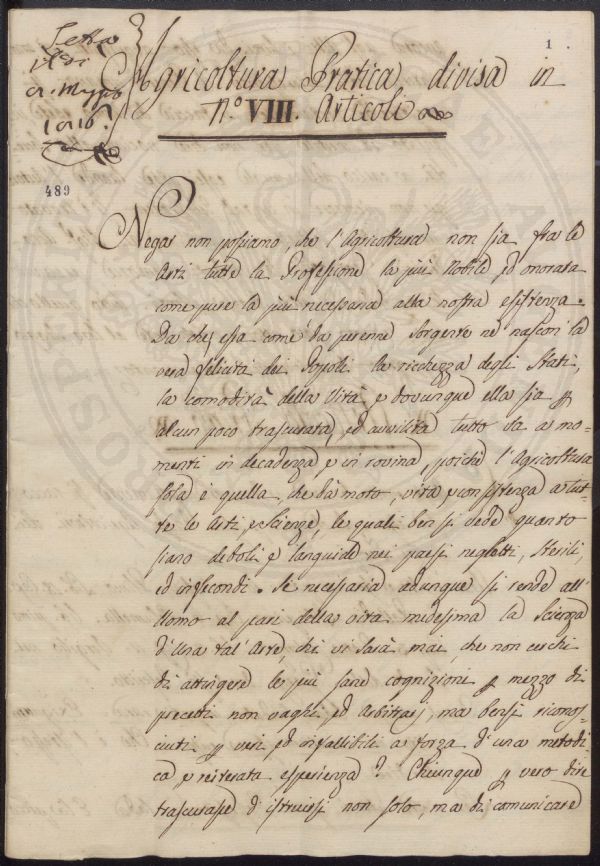 1.
Letta
il dì
Maggio
1816
Agricoltura Pratica divisa in
N.º VIII. Articoli
489
Negar non possiamo che l'Agricoltura non sia fra le
Arti tutte la Professione la più Nobile ed onorata
come pure la più necessaria alla nostra esistenza.
Da che essa come da perenne sorgente ne nascon la
vera felicità dei Popoli la ricchezza degli Stati,
la comodità della Vita, e dovunque ella sia p
alcun poco trascurata, ed avvilita tutto va a mo-
menti in decadenza e in rovina, poichè l'Agricoltura
sola è quella, che dà moto, vita e consistenza a tut-
te le Arti e Scienze, le quali ben si vede quanto
siano deboli e languide nei paesi negletti, sterili,
ed infecondi. Se necessaria adunque si rende all'
Uomo al pari della vita medesima la Scienza
d'una tal'Arte, chi vi sarà mai, che non cerchi
di attingere le più sane cognizioni p mezzo di
precetti non vaghi ed arbitrarj, ma bensì ricono-
sciuti p veri ed infallibili a forza d'una metodi-
ca e reiterata esperienza? Chiunque p vero dire
trascurasse d'istruirsi non solo, ma di comunicare